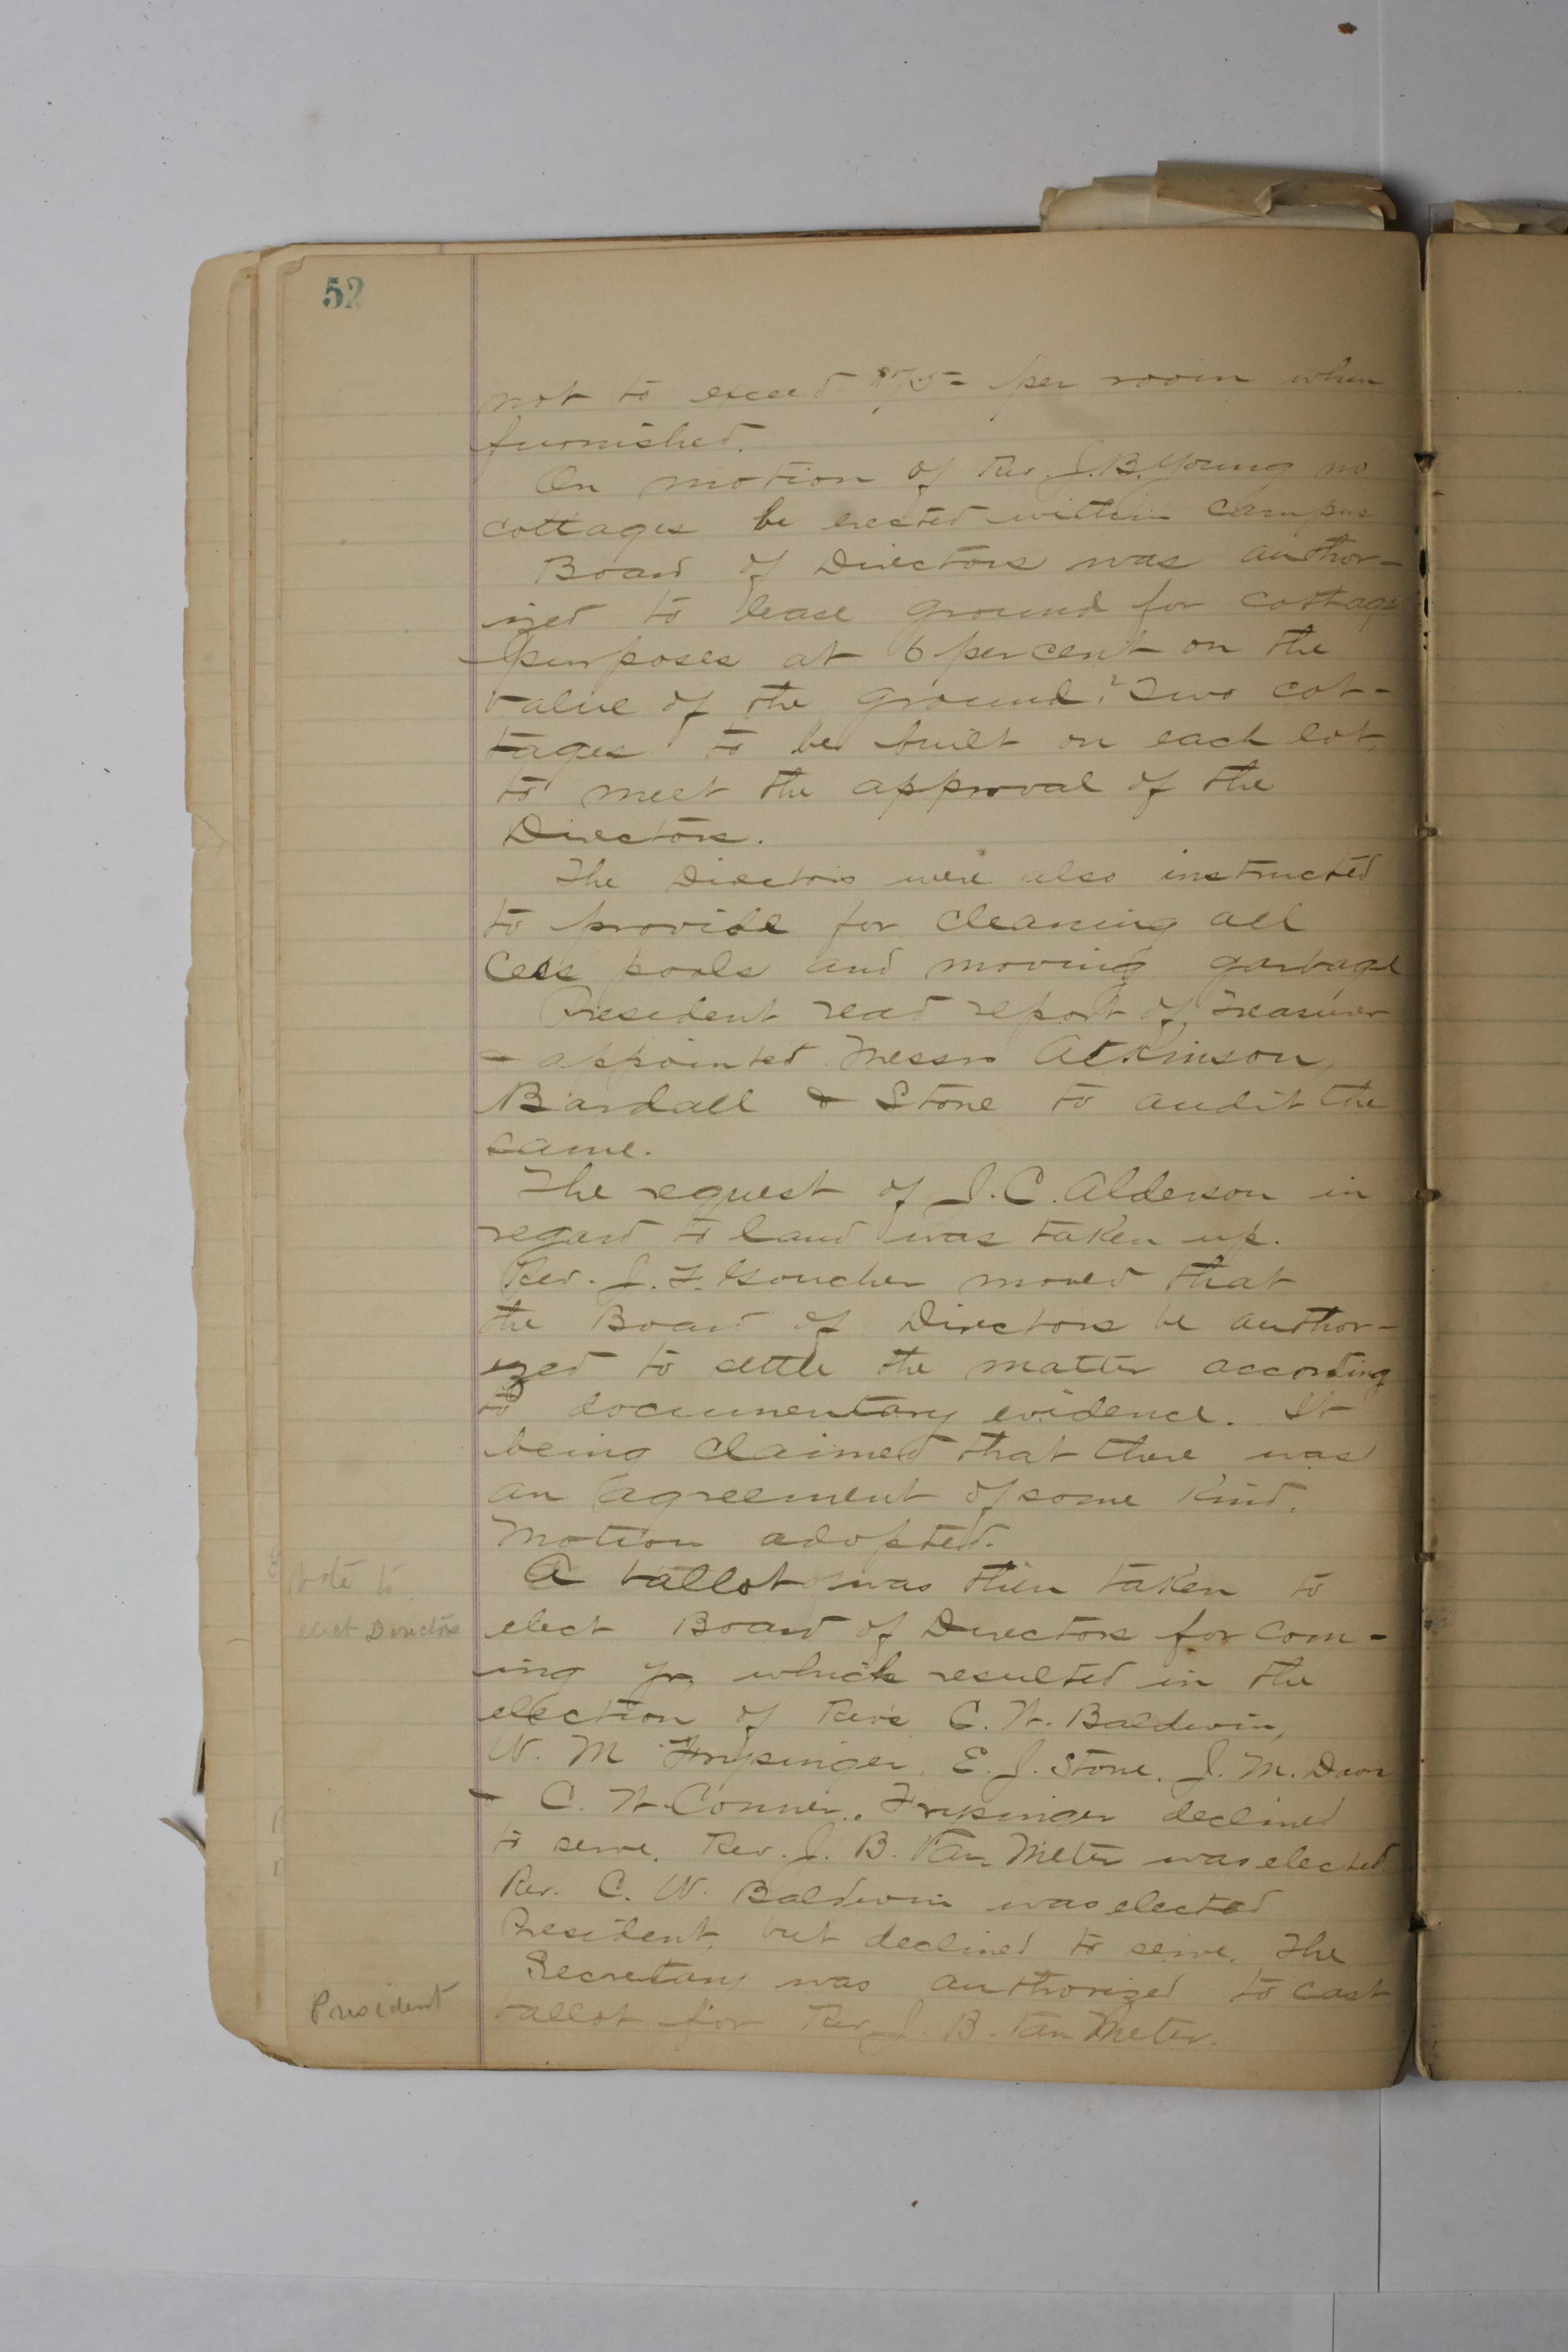 52
not to exceed $75- per room when
furnished.
On motion of Rev. J. B. Young no
cottages be erected within campus
Board of Directors was author-
ized to lease ground for cottage
purposes at 6 percent on the
value of the ground. Two cot-
tages to be built on each lot
to meet the approval of the
Directors.
The Directors were also instructed
to provide for cleaning all
Cess pools and moving garbage
President read report of Treasurer
& appointed Messrs Atkinson,
Bardall & Stone to audit the
same.
The request of J. C. Alderson in
regard to land was taken up.
Rev. J. F. Goucher moved that
the Board of Directors be author-
ized to settle the matter according
to documentary evidence. It
being claimed that there was
an agreement of some kind.
Motion adopted.
Vote to
elect Directors
A ballot was then taken to
elect Board of Directors for com-
ing yr. which resulted in the
election of Revs C. W. Baldwin,
W. M. Frysinger, E. J. Stone, J. M. Davis
& C. W. Conner. Frysinger declined
to serve. Rev. J. B. Van Meter was elected.
Rev. C. W. Baldwin was elected
President, but declined to serve. The
Secretary was authorized to cast
President
ballot for Rev J. B. Van Meter.